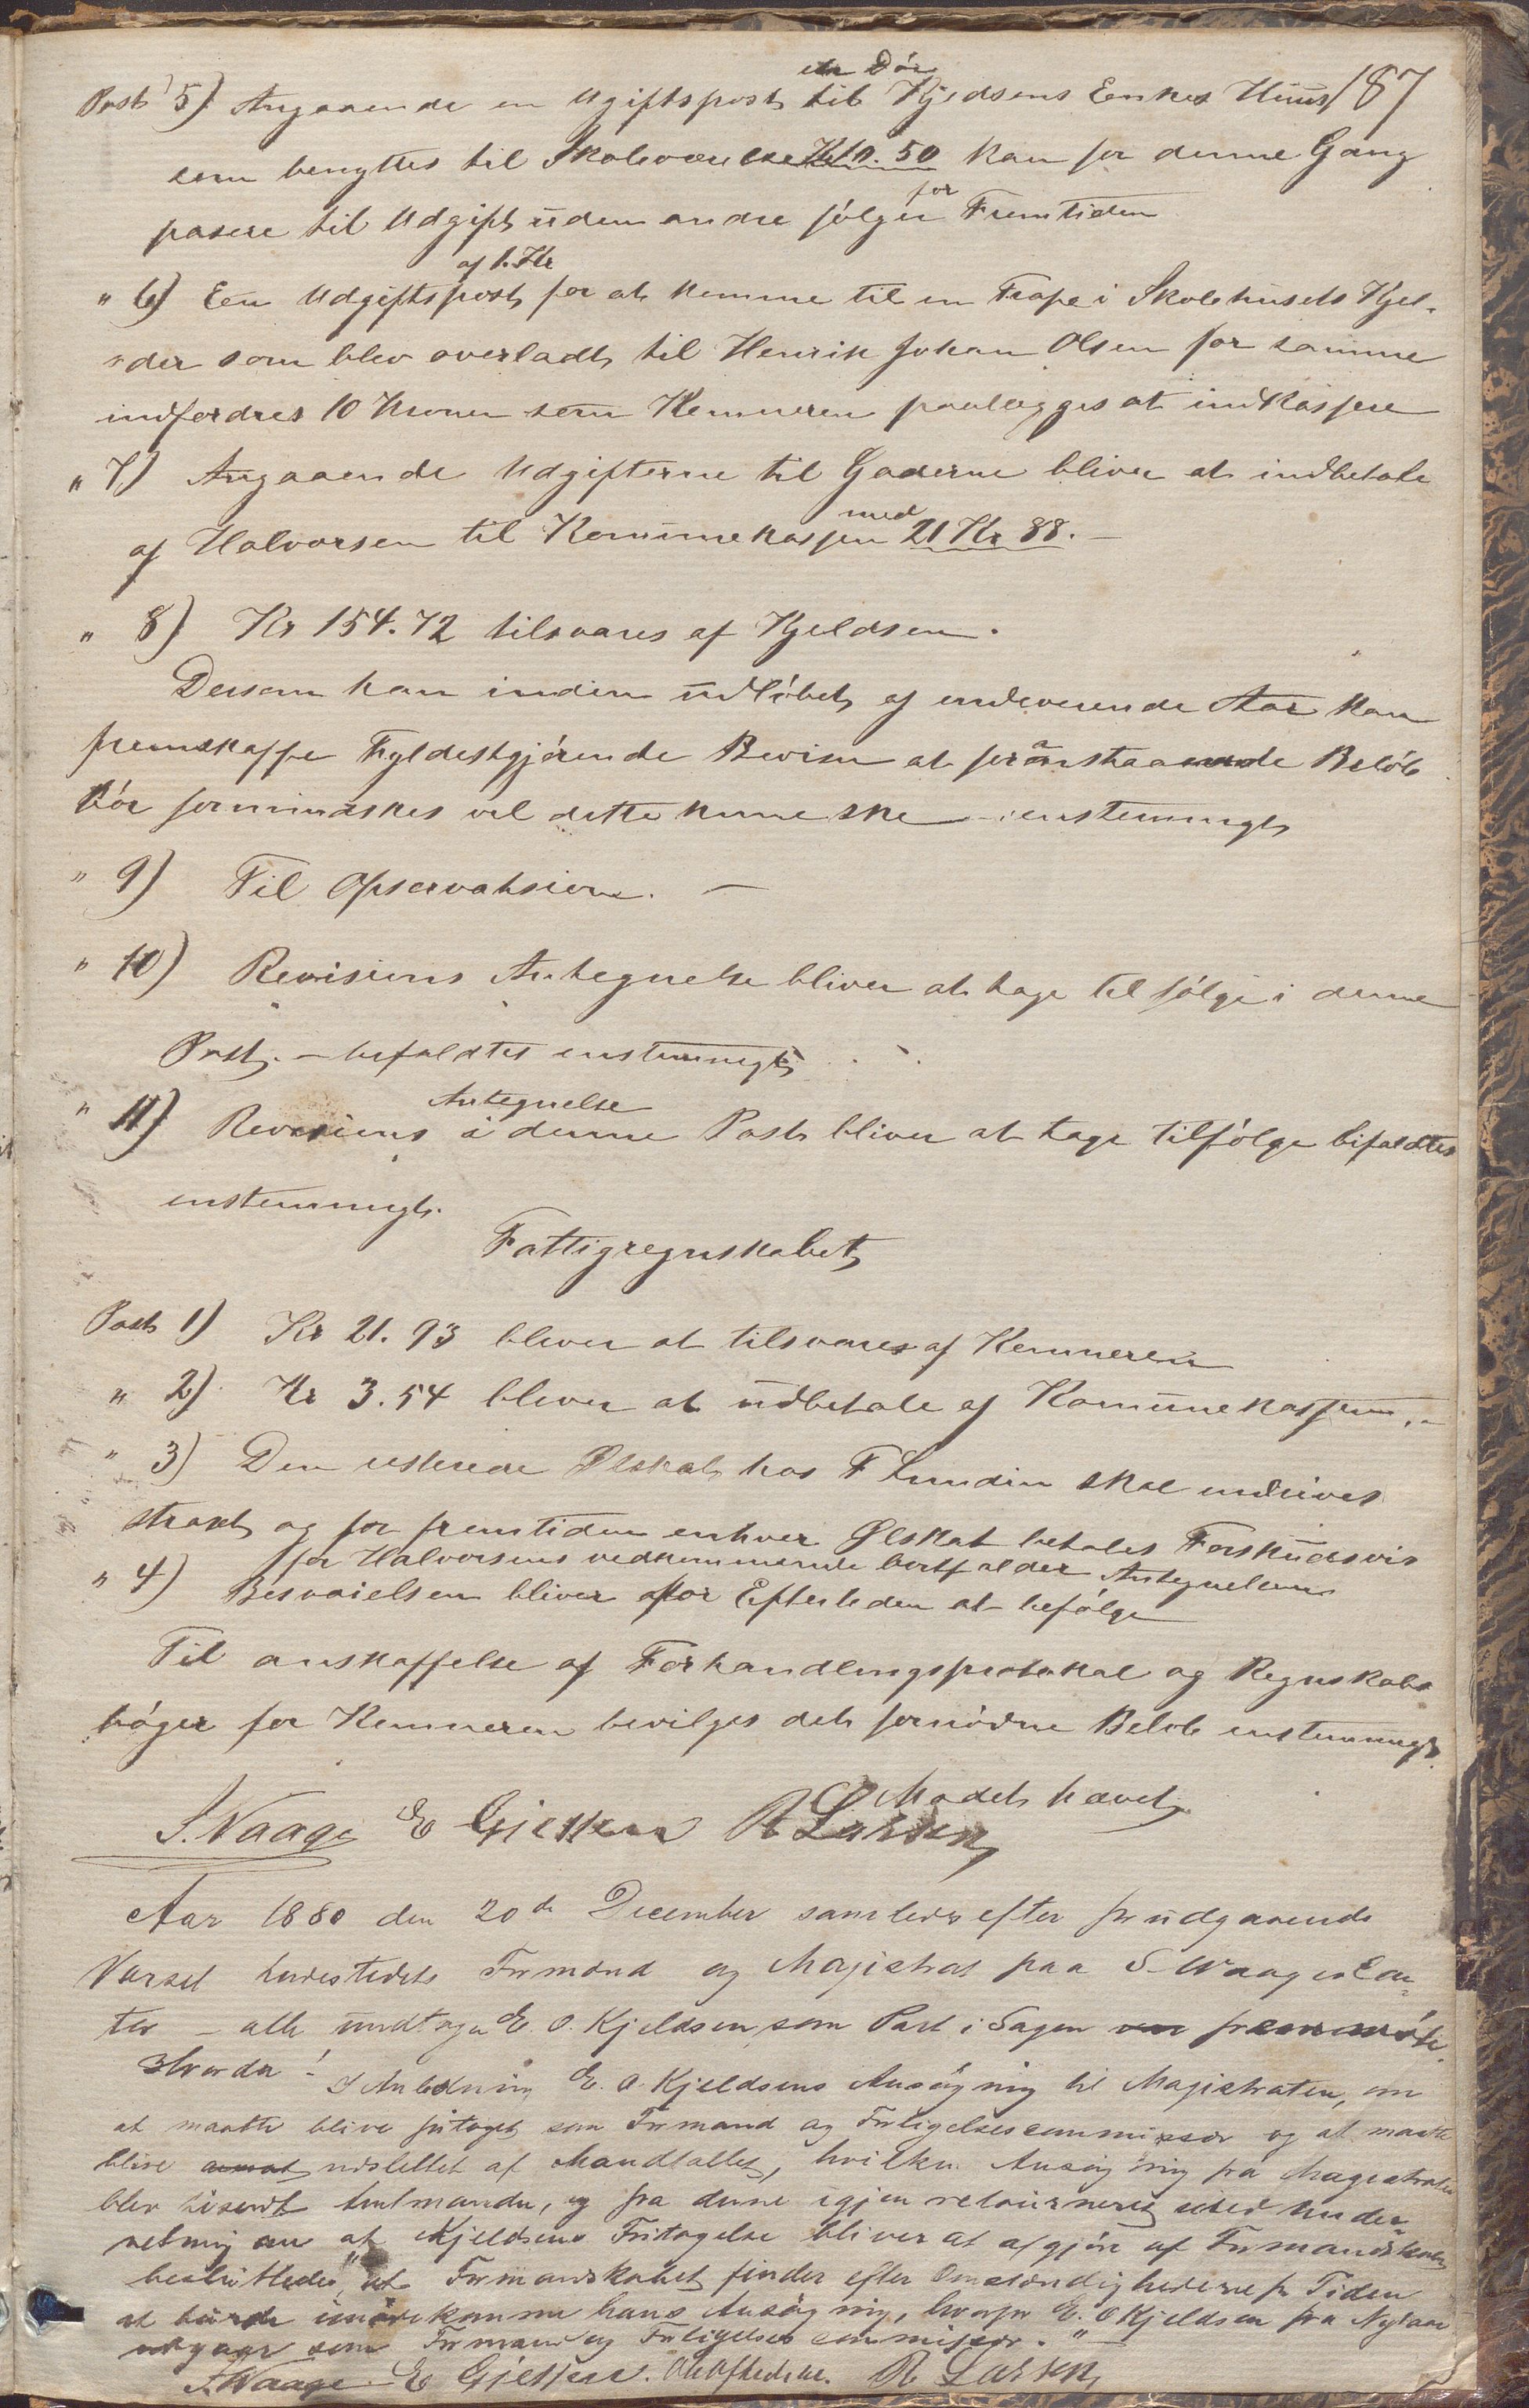 187
en Dör
Post 5) Angaaende en Ugiftspost til Kjedsens Enkes Huus
som benyttes til Skoleværelse Kr 10. 50 kan for denne Gang
pasere til Udgift uden andre fölger for Fremtiden
af 1. Kr
" 6) Een Udgiftspost for at komme til en Trape i Skolehusets Kjel-
der som blev overladt til Henrik Johan Olsen for samme
indfordres 10 Kroner som Kemneren paalægges at indkassere
" 7) Angaaende Udgifterne til Gaderne bliver at indbetale
af Halvorsen til Komunekassen med 21 Kr 88. —
" 8) Kr 154.72 tilsvares af Kjeldsen.
Dersom han inden udlöbet af indeværende Aar kan
fremskaffe Fyldestgjörende Beviser at foranstaaende Belöb
bör formindskes vil dette kunne ske — enstemmigt
" 9) Til Opservatsion. —
" 10) Revisions Antegnelse bliver at tage til fölge i denne
Post. — bifaldtes enstemmigt
Antegnelse
" 11) Revisions i denne Post bliver at tage tilfölge bifaldtes
enstemmigt.
Fattigregnskabet
Post 1) Kr 21. 93 bliver at tilsvares af Kemneren
" 2) Kr 3.54 bliver at udbetale af Komunekassen. –
" 3) Den resterede Ölskat hos F Lundin skal inddrives
straxt og for fremtiden enhver Ölskat betales Forskudsvis
for Halvorsens vedkommende bortfalder Antegnelsen
" 4) Besvarelsen bliver for Eftertiden at befölge
Til anskaffelse af Forhandlingsprotokol og Regnskabs
böger for Kemneren bevilges det fornödne Belöb enstemmigt.
Mödet hævet
S. Waage E Gjessen R Larsen
Aar 1880 den 20de December samledes efter forudgaaende
Varsel herværstedets Formænd og Magistrat paa S. Waages Con-
tor — alle undtagen E. O. Kjeldsen, som Part i Sagen
I Anledning E. O. Kjeldsens Ansögning til Magistraten, om
at maatte blive fritaget som Formand og Forligelsescommissær og at maatte
blive udslettet af Mandtallet, hvilken Ansögning fra Magistraten
blev tilsendt Amtmanden, og fra denne igjen retourneret med Under-
retning om at Kjeldsens Fritagelse bliver at afgjöre af Formandskabet
besluttedes, "at Formandskabet finder efter Omstændighederne for Tiden
at burde imödekomme hans Ansögning, hvorfor E. O Kjeldsen fra Nytaar
udgaar som Formand og Forligelsescommissær. "
S. Waage E Gjessen. R Larsen